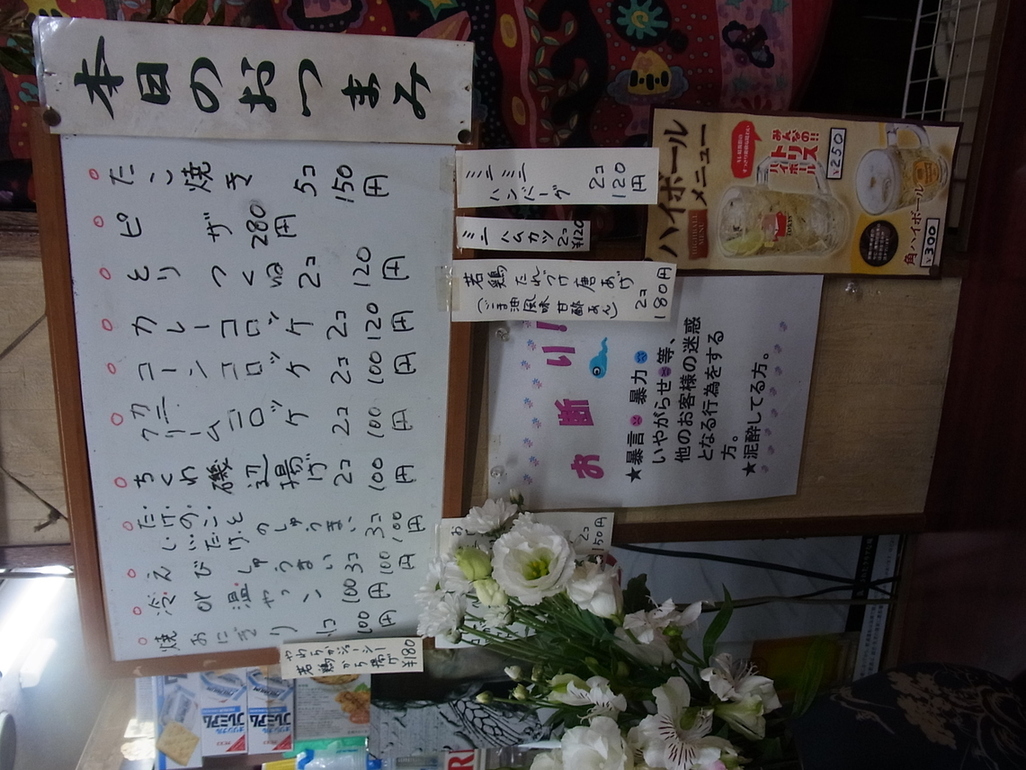 本日のおつまみ
たこ焼き 5コ 150円
ピザ 280円
とりつくね 2コ 120円
カレーコロッケ 2コ 120円
コーンコロッケ 2コ 100円
カニクリームコロッケ 2コ 100円
ちくわ磯辺揚げ 2コ 100円
しいたけ・たけのこ
のしゅうまい 3コ 100円
えびしゅうまい 3コ 100円
冷or温やっこ 100円
焼おにぎり 1コ 100円
ミニミニ
ハンバーグ 2コ 120円
ミニハムカツ 2コ ¥120
若鶏たれづけ唐あげ
(ごま油風味甘酢あん) 2コ 180円
やわらかジューシー
若鶏から揚げ ¥180
ハイボール
メニュー
HIGHBALL MENU
みんなの!!
トリス
ハイボール
¥250
角ハイボール
¥300
お断り!
★暴言 暴力
いやがらせ 等、
他のお客様の迷惑
となる行為をする
方。
★泥酔してる方。
2コ
150円
プレミアム
プレミアム